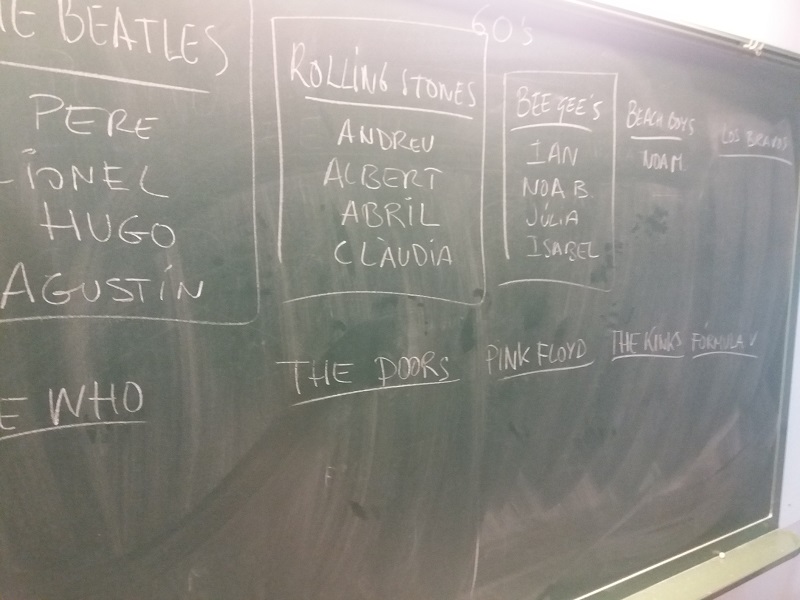 60's
E BEATLES
PERE
LIONEL
HUGO
AGUSTÍN
ROLLING STONES
ANDREU
ALBERT
ABRIL
CLÀUDIA
BEE GEE'S
IAN
NOA B.
JÚLIA
ISABEL
BEACH BOYS
NOA M.
LOS BRAVOS
E WHO
THE DOORS
PINK FLOYD
THE KINKS
FÓRMULA V